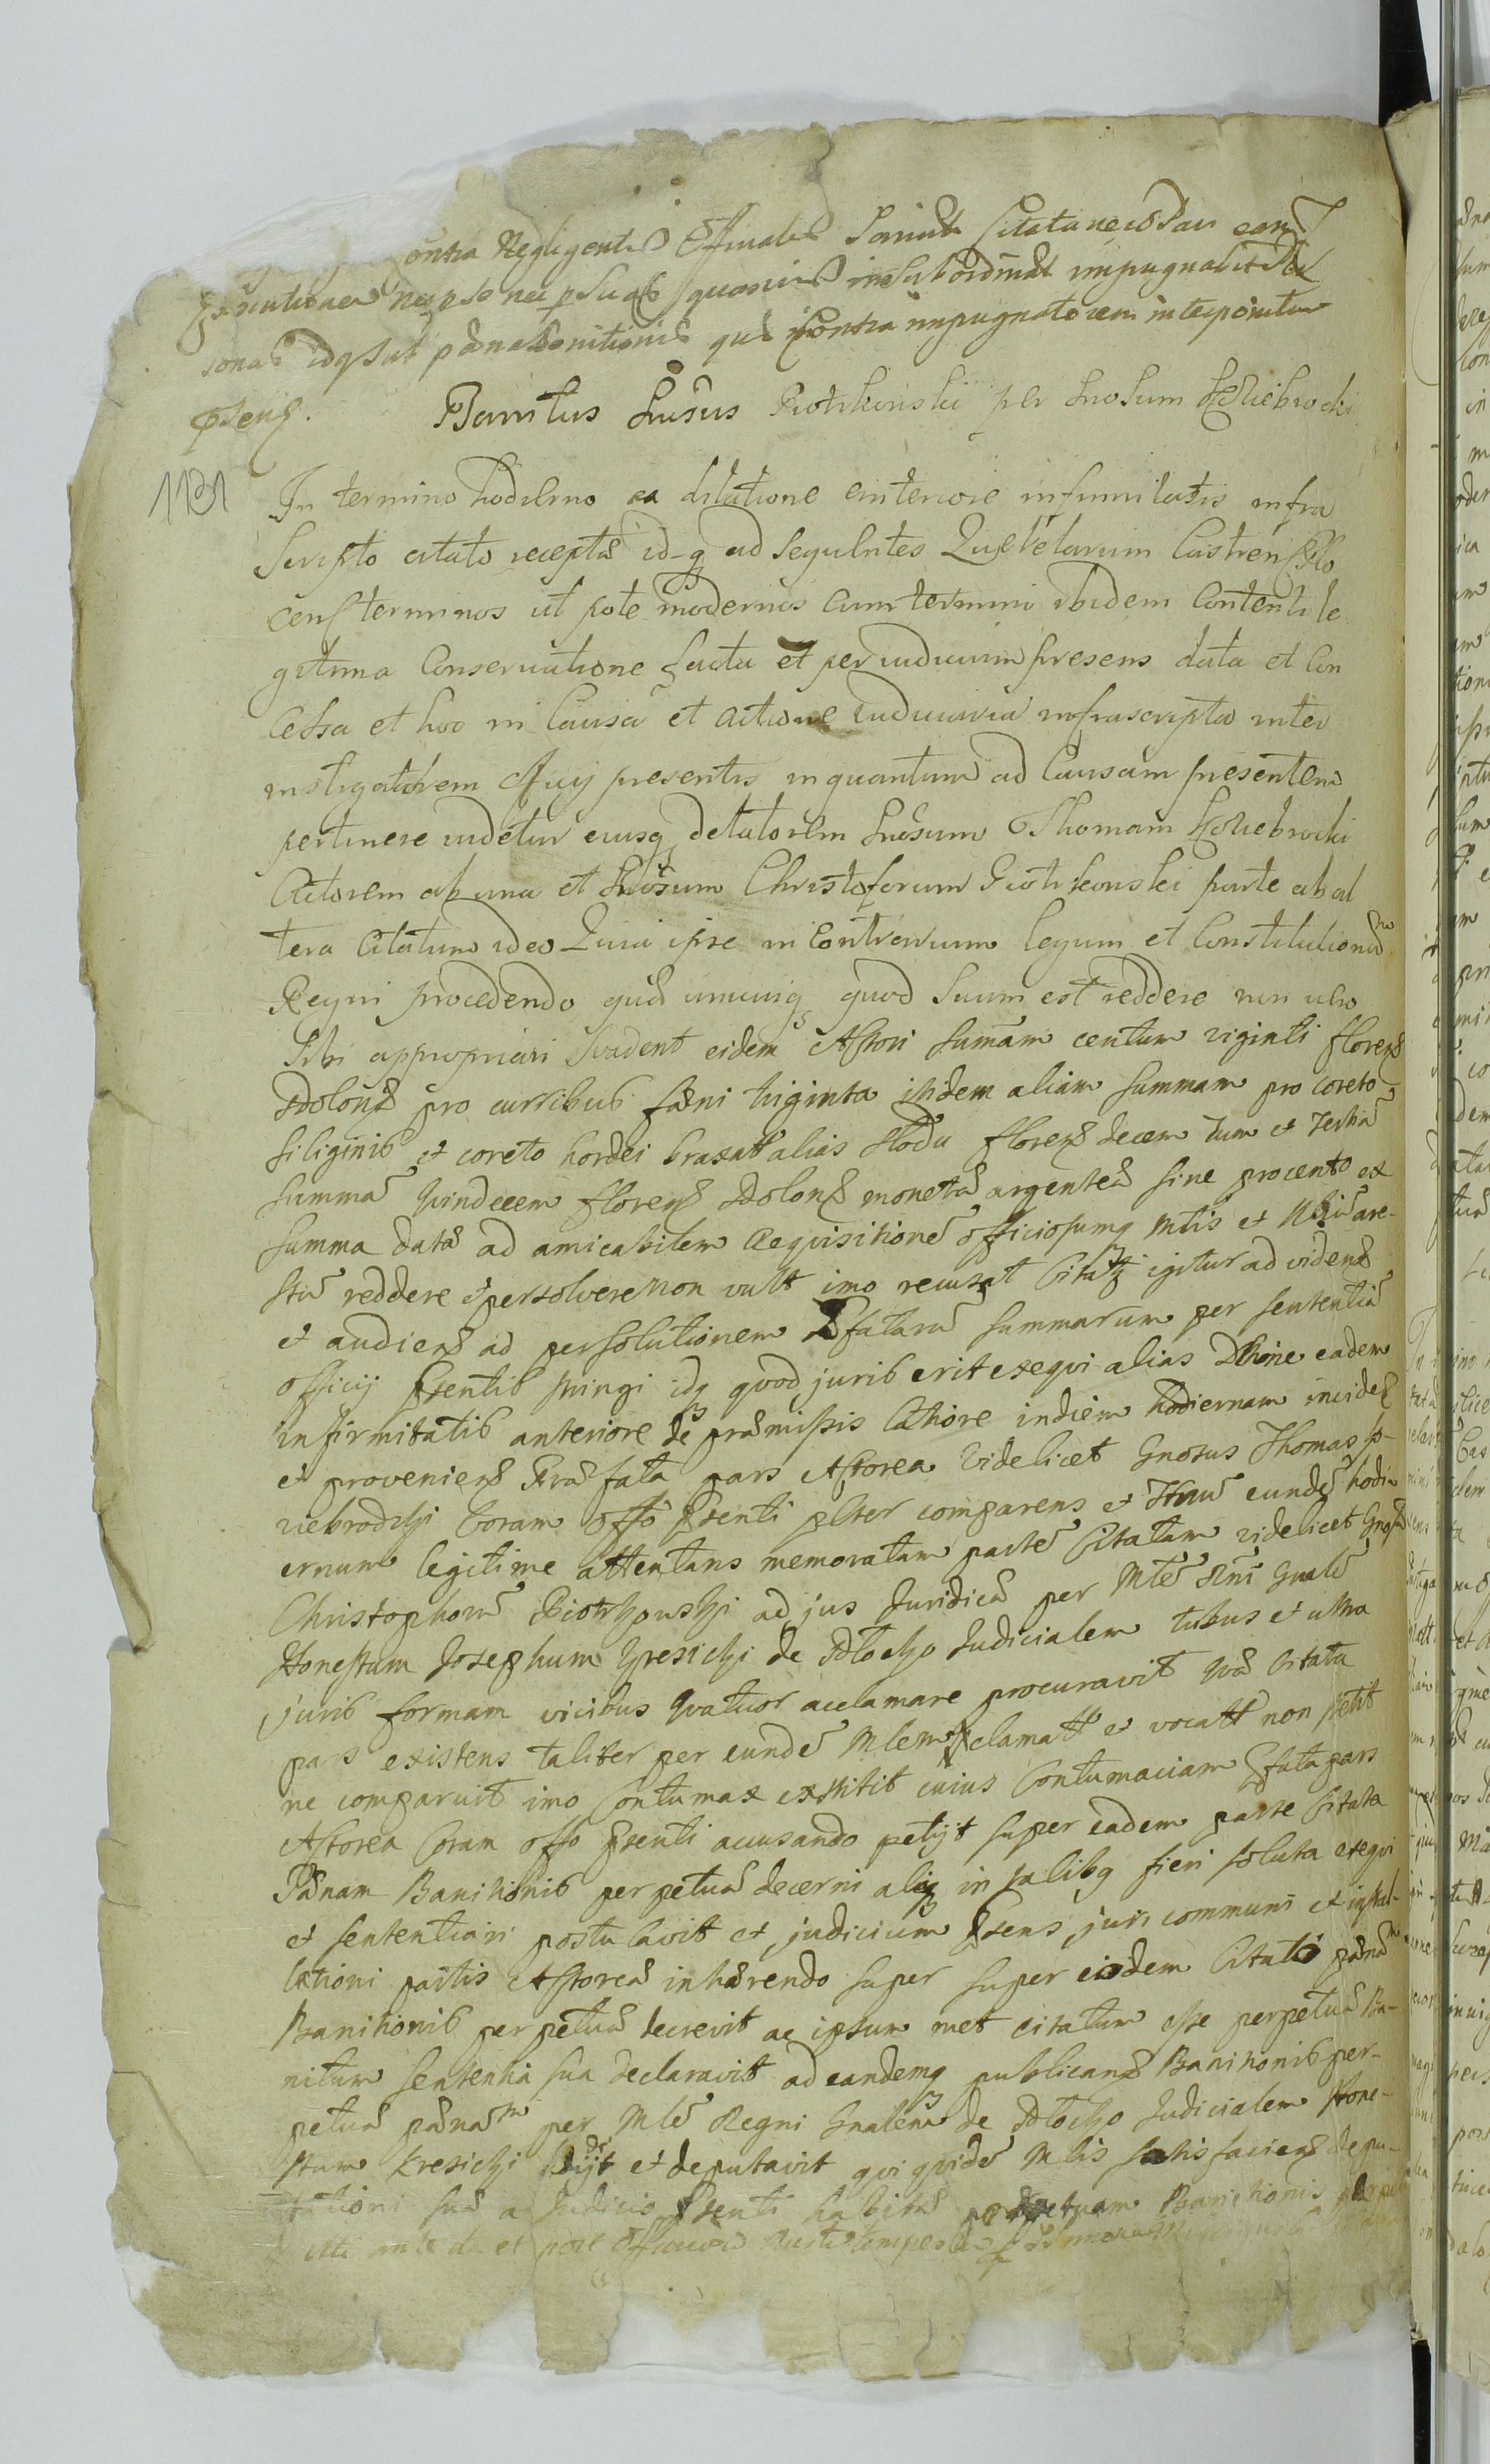 ontra Negligentes Officiales Sonunt Citataneces Pars eam
sonas idq sub pæna banitionis quæ contra impugnatorem interponitur
Pseng.
Banitus Gnosus Piotrkowski per Gnosum Koziebrocki
1131
In termino hodierno ea dilatione anteriore infirmitatis infra
Scripto citato recepta id-q ad sequentes Querelarum Castren Plo
cen terminos ut pote modernos cum termini ibidem Contenti le
gitima Conservatione facta et per iudicium presens data et Con
cessa et hoc in Causa et actione iudiciaria infrascripta inter
instigatorem Officij presentis in quantum ad Causam presentem
pertinere videtur eiusq delatorem Gnosum Thomam Koziebrocki
Actorem ab una et Gnosum Christoforum Piotrkowski parte ab al
tera Citatum ideo Quia ipse in Contrarium legum et Constitutionum
Regni procedendo quæ unicuiq quod Suum est reddere non vero
Sibi appropriari Svadent eidem Actori sumam centum viginti floren
Polon pro curribus fæni triginta itidem aliam summam pro coreto
siliginis et coreto hordei braxatt alias słodu floren decem tum et Tertiã
summã quindecem floren Polon monetæ argenteæ sine procento ex
summa data ad amicabilem Requisitionẽ officiosumq Mtlis et are-
stũ reddere et persolvere non vult imo recusat Citatq igitur ad videns
et audiens ad persolutionem Pfatarũ summarum per sententiã
officij Psentis stringi idq quod juris erit exequi alias Dilõne eadem
infirmitatis anteriore de præmissis Actiore in diem hodiernam inciden
et provenien Præfata pars Actorea Videlicet Gnosus Thomas Ko-
ziebrodzki Coram Offo Psenti plter comparens et Tnũ eundẽ hodi
ernum legitime attentans memoratam partẽ Citatam videlicet Gnosũ
Christophorũ Piotrkowski ad jus Juridicẽ per Mlẽ Rni Gnalẽ
Honestum Josephum Kresicki de Płocko Judicialem tubus et ultra
juris formam vicibus quatuor acclamare procuravit quæ Citata
pars existens taliter per eundẽ Mlem acclamatt et vocatt non petit
ne comparuit imo Contumax extitit cuius Contumaciam Pfata pars
Actorea Coram offo Psenti accusando petijt super eadem parte Citata
Pænam Banitionis perpetuæ decerni aliq in talibq fieri soluta exequi
et sententiari postulavit et judicium Psens juri communi et inftal-
lationi partis Actoreæ inhærendo super super eodem Citato pænã
Banitionis perpetuæ decrevit ac ipsum met citatum esse perpetuũ Ba-
nitum sententia sua declaravit ad eandemq publicans Banitionis per-
petuæ pænam per Mlẽ Regni Gnalem de Płocko Judicialem Hone-
stum Kresicki addijt et deputavit qui quidẽ Mlis satisfaciens depu-
tationi suæ a Judicio Psenti habitæ perpetuam Banitionis